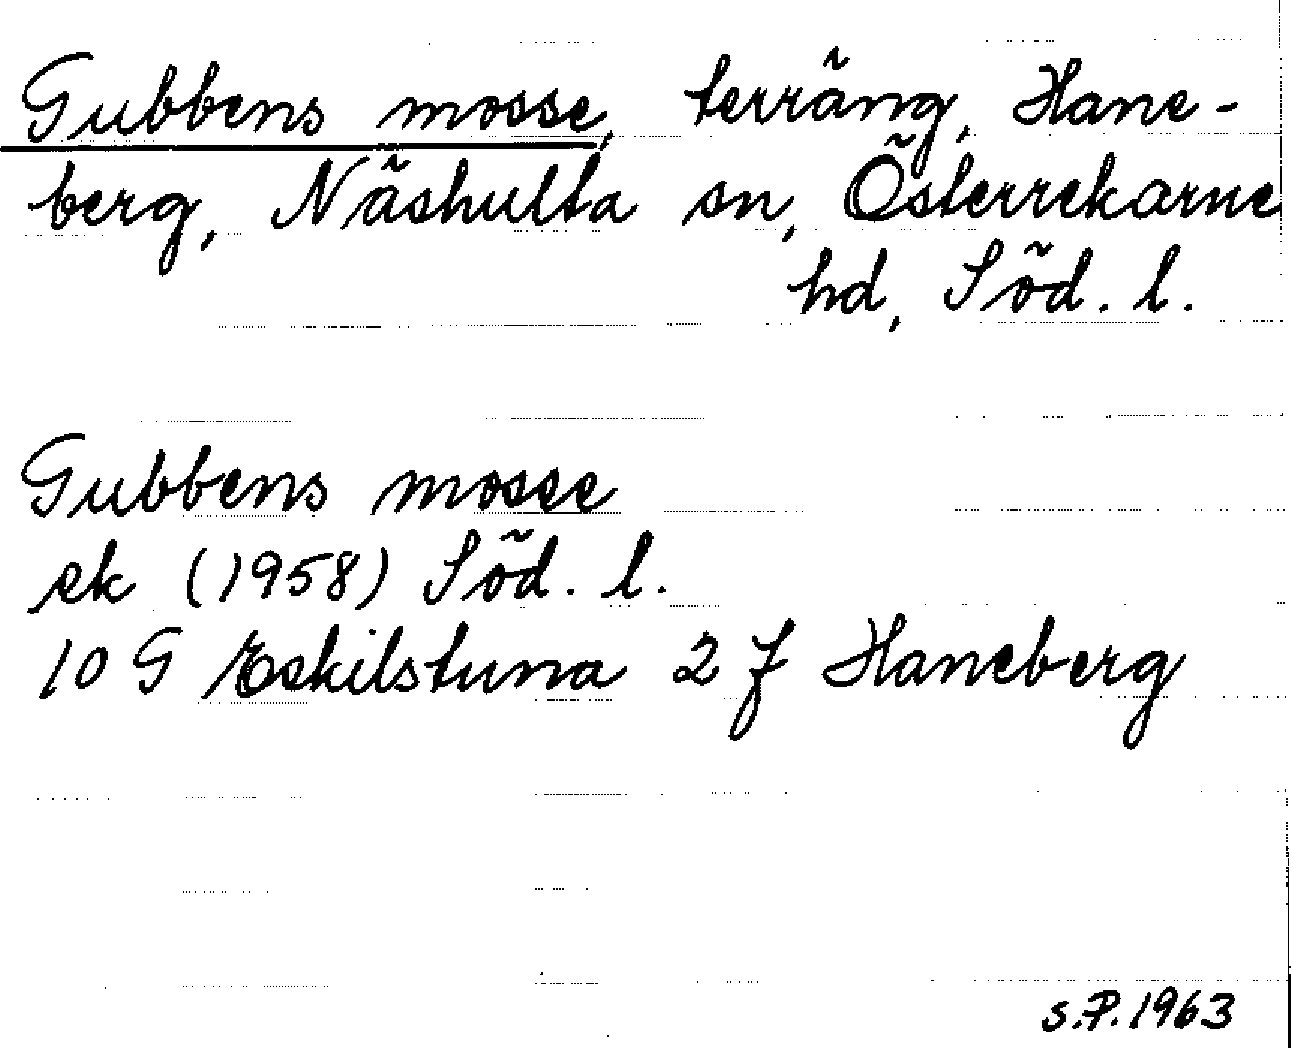 Gubbens mosse, terräng, Hane-
berg, Näshulta sn, Österrekarne
hd, Söd. l.
Gubbens mosse
ek (1958) Söd. l.
10 G Eskilstuna 2 f Haneberg
S.P. 1963